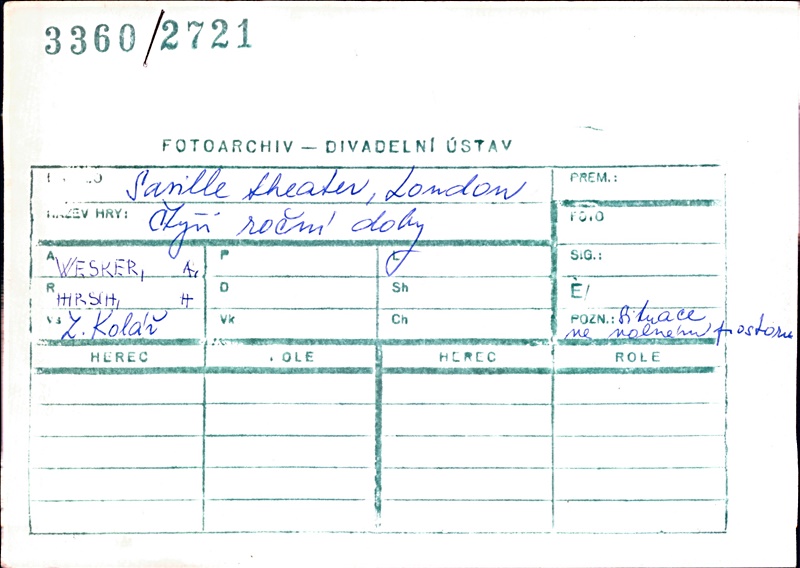 3360/2721
FOTOARCHIV — DIVADELNÍ ÚSTAV
Saville theater, London
PREM.:
NÁZEV HRY: Čtyři roční doby
FOTO
A WESKER, A,
P
L
SIG.:
R HIRSCH, H
D
Sh
Ě/
Vs Z. Kolář
Vk
Ch
POZN.: Situace
na volném prostoru
HEREC
ROLE
HEREC
ROLE